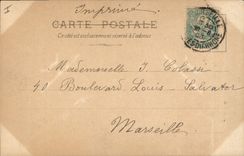 Imprimé
CARTE POSTALE
Ce côté est exclusivement réservé à l'adresse
Mademoiselle J. Colassi
40 Boulevard Louis-Salvator
Marseille